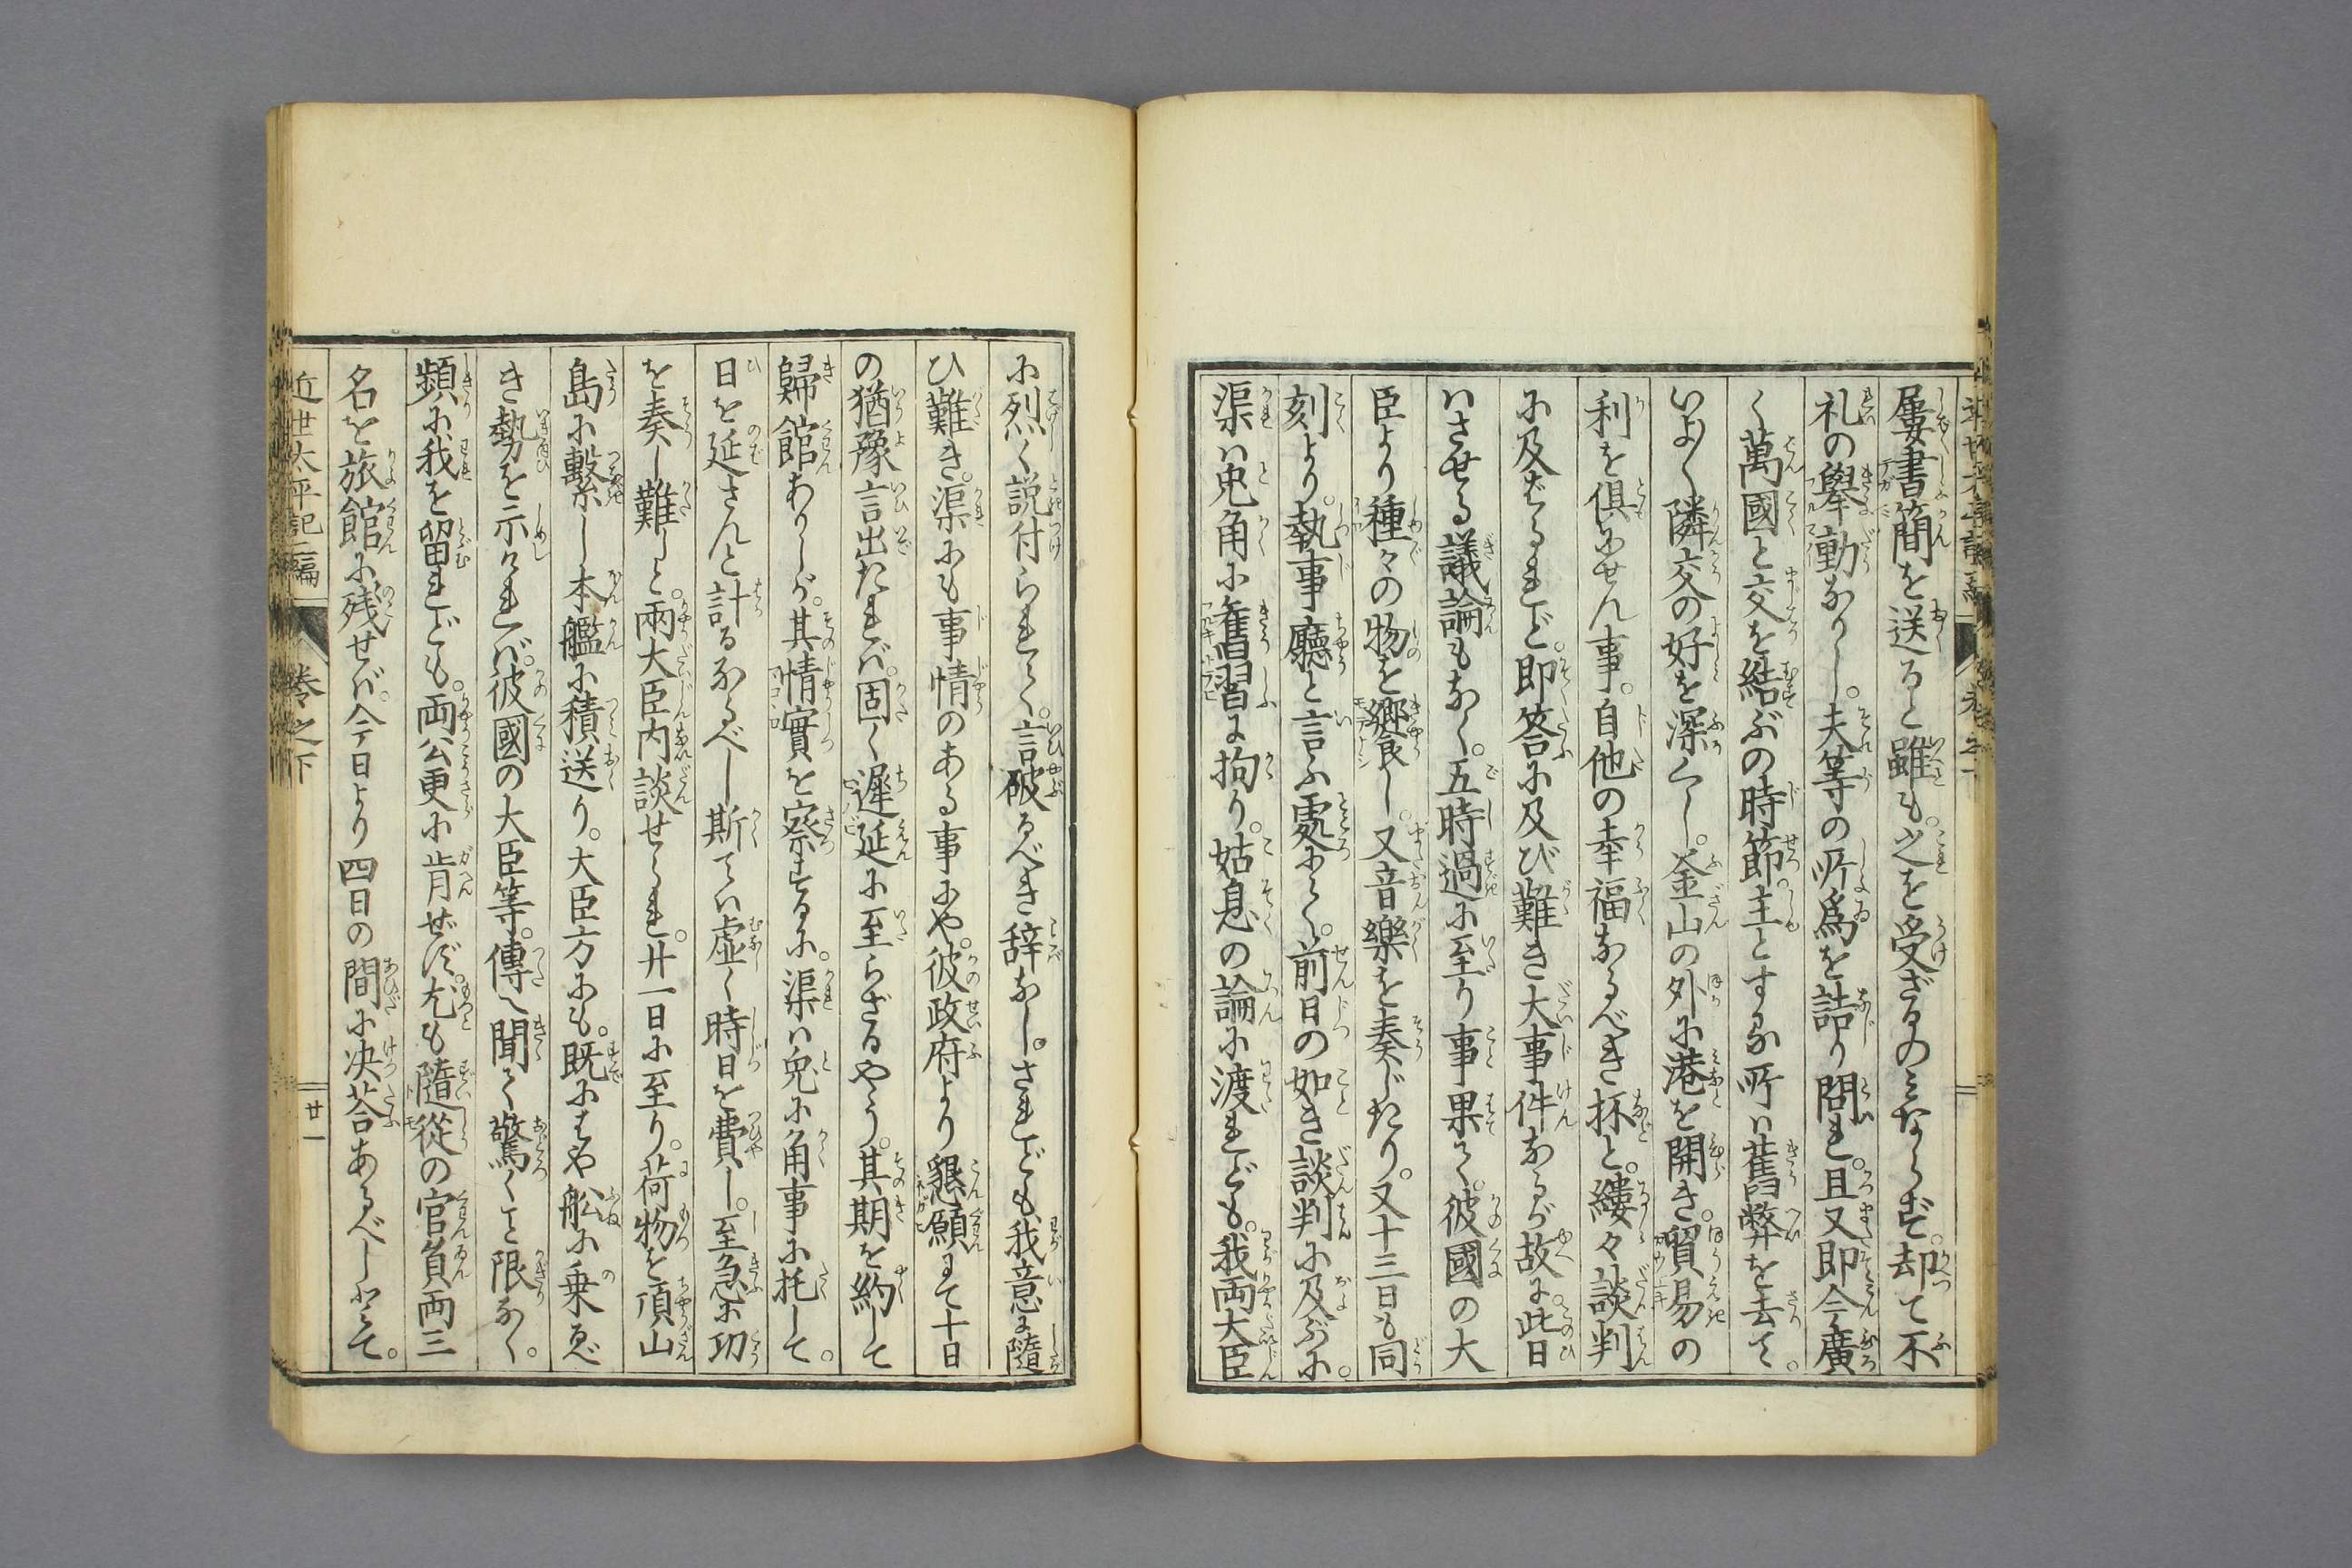 屢書簡を送ると雖も。之を受ざるのミならず。却て不
礼の擧動あり〱し。夫等の所爲を詰り問れ。且又即今廣
く萬國と交を結ぶの時節。主とする所ハ舊弊を去て。
いよ〱隣交の好を深くし。釜山の外に港を開き。貿易の
利を倶にせん事。自他の幸福なるべき抔と。縷々談判
に及ばるれど。即答に及び難き大事件なるが故に。此日
ハさせる議論もなく。五時過に至り事果て。彼國の大
臣より種々の物を饗し。又音樂を奏じたり。又十三日も同
刻より。執事廳と言ふ處にて。前日の如き談判に及ぶに。
渠ハ兎角に舊習に拘り。姑息の論に渡れども。我両大臣
に烈く説付られて。言破るべき辞なし。されども我意に隨
ひ難き。渠にも事情のある事にや。彼政府より懇願にて十日
の猶豫言出たれバ。固く遅延に至らざるやう。其期を約して
歸館ありしが。其情實を察するに。渠ハ兎に角事に托して。
日を延さんと計るなるべし斯てハ虚く時日を費し。至急に功
を奏し難しと。兩大臣内談せられ。廿一日に至り。荷物を頂山
島に繋し本艦に積送り。大臣方にも。既にはや舩に乗るべ
き勢を示けれバ。彼國の大臣等。傳へ聞て驚くこと限なく。
頻に我を留れども。両公更に肯ぜず。尤も隨從の官員両三
名を旅館に残せバ。今日より四日の間に决荅あるべしとて。
近世太平記二編
巻之下
廿一